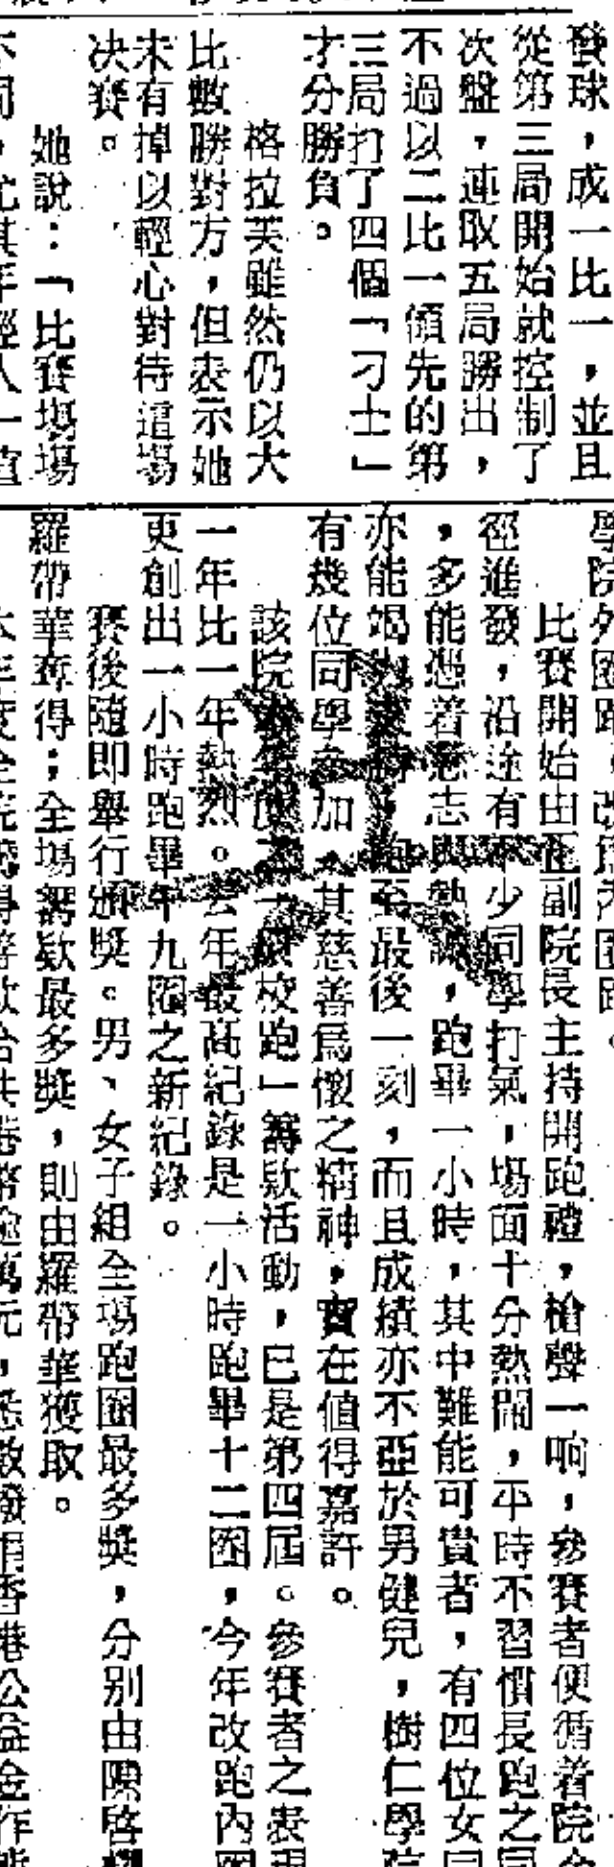 發球，成一比一，並且
從第三局開始就控制了
次盤，連取五局勝出，
不過以二比一領先的第
三局打了四個「刁士」
才分勝負。
格拉芙雖然仍以大
比數勝對方，但表示她
未有掉以輕心對待這場
决賽。
她說：「比賽場場
不同，尤其年輕人一
學院外圈跑，改為內圈跑。
比賽開始由正副院長主持開跑禮，槍聲一响，參賽者便循着院
徑進發，沿途有不少同學打氣，場面十分熱鬧，平時不習慣長跑之同
，多能憑着意志與熱誠，跑畢一小時，其中難能可貴者，有四位女同
亦能竭力支持，跑至最後一刻，而且成績亦不亞於男健兒，樹仁學院
有幾位同學參加，其慈善爲懷之精神，實在值得嘉許。
該院校跑」籌欵活動，巳是第四屆。參賽者之表現
一年比一年熱烈。去年最高紀錄是一小時跑畢十二圈，今年改跑內圈
更創出一小時跑畢九圈之新紀錄。
賽後隨即舉行頒獎。男、女子組全場跑圈最多獎，分別由陳啓
羅帶華奪得；全場籌欵最多獎，則由羅帶華獲取。
本年度全院籌得善欵合共港幣萬元，悉數撥捐香港公益金作